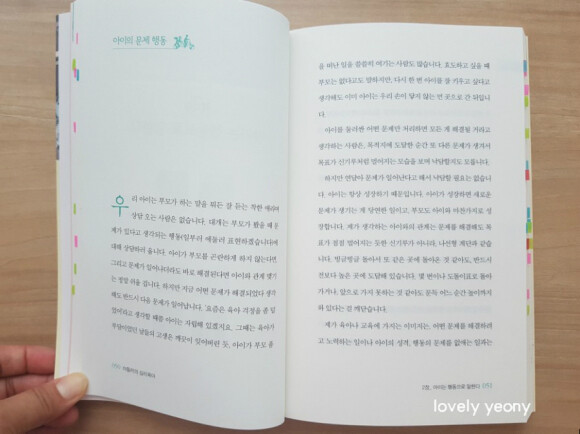 아이의 문제 행동
우리 아이는 부모가 하는 말을 뭐든 잘 듣는 착한 애라며
상담 오는 사람은 없습니다. 대개는 부모가 봤을 때 문
제가 있다고 생각되는 행동(일부러 애둘러 표현하겠습니다)에
대해 상담하러 옵니다. 아이가 부모를 곤란하게 하지 않는다면
그리고 문제가 일어나더라도 바로 해결된다면 아이와 관계 맺기
는 정말 쉬울 겁니다. 하지만 지금 어떤 문제가 해결되었다 생각
해도 반드시 다음 문제가 일어납니다. '요즘은 육아 걱정을 좀 덜
었어'라고 생각할 때쯤 아이는 자립해 있겠지요. 그때는 육아가
부담이었던 날들의 고생은 깨끗이 잊어버린 듯, 아이가 부모 품
050 아들러의 심리육아
을 떠난 일을 쓸쓸히 여기는 사람도 많습니다. 효도하고 싶을 때
부모는 없다고도 말하지만, 다시 한 번 아이를 잘 키우고 싶다고
생각해도 이미 아이는 우리 손이 닿지 않는 먼 곳으로 간 뒤입니
다.
아이를 둘러싼 어떤 문제만 처리하면 모든 게 해결될 거라고
생각하는 사람은, 목적지에 도달한 순간 또 다른 문제가 생겨서
목표가 신기루처럼 멀어지는 모습을 보며 낙담할지도 모릅니다.
하지만 연달아 문제가 일어난다고 해서 낙담할 필요는 없습니
다. 아이는 항상 성장하기 때문입니다. 아이가 성장하면 새로운
문제가 생기는 게 당연한 일이고, 부모도 아이와 마찬가지로 성
장합니다. 제가 생각하는 아이와의 관계는 문제를 해결해도 목
표가 점점 멀어지는 듯한 신기루가 아니라, 나선형 계단과 같습
니다. 빙글빙글 돌아서 또 같은 곳에 돌아온 것 같아도, 반드시
전보다 높은 곳에 도달해 있습니다. 몇 번이나 도돌이표로 돌아
가거나, 앞으로 가지 못하는 것 같아도 문득 어느 순간 높이까지
와 있다는 걸 깨닫습니다.
제가 육아나 교육에 가지는 이미지는, 어떤 문제를 해결하려
고 노력하는 일이나 아이의 성격, 행동의 문제를 없애는 일과는
2장_ 아이는 행동으로 말한다 051
lovely yeony